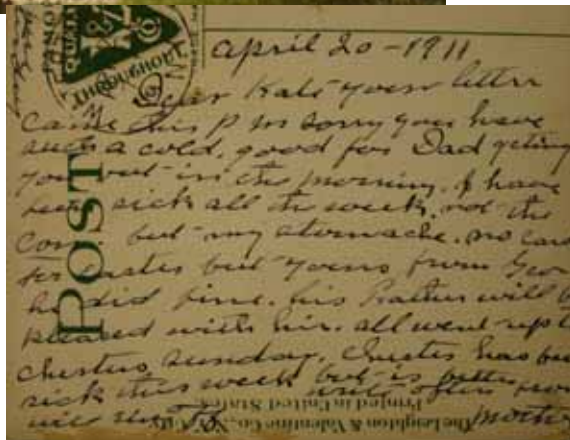 april 20 - 1911
Dear Kate your letter
came this P m sorry you have
such a cold. good for Dad geting
you out in the morning. I have
been sick all the week. not the
but my stomache. no
for Easter but yours from Geo
he did fine. his Father will
pleased with him. all went up
chesters sunday. Chester has
sick this week but is better
will
mother
POST
The Leighton & Valentine Co., N.Y. City.
Printed in United States.